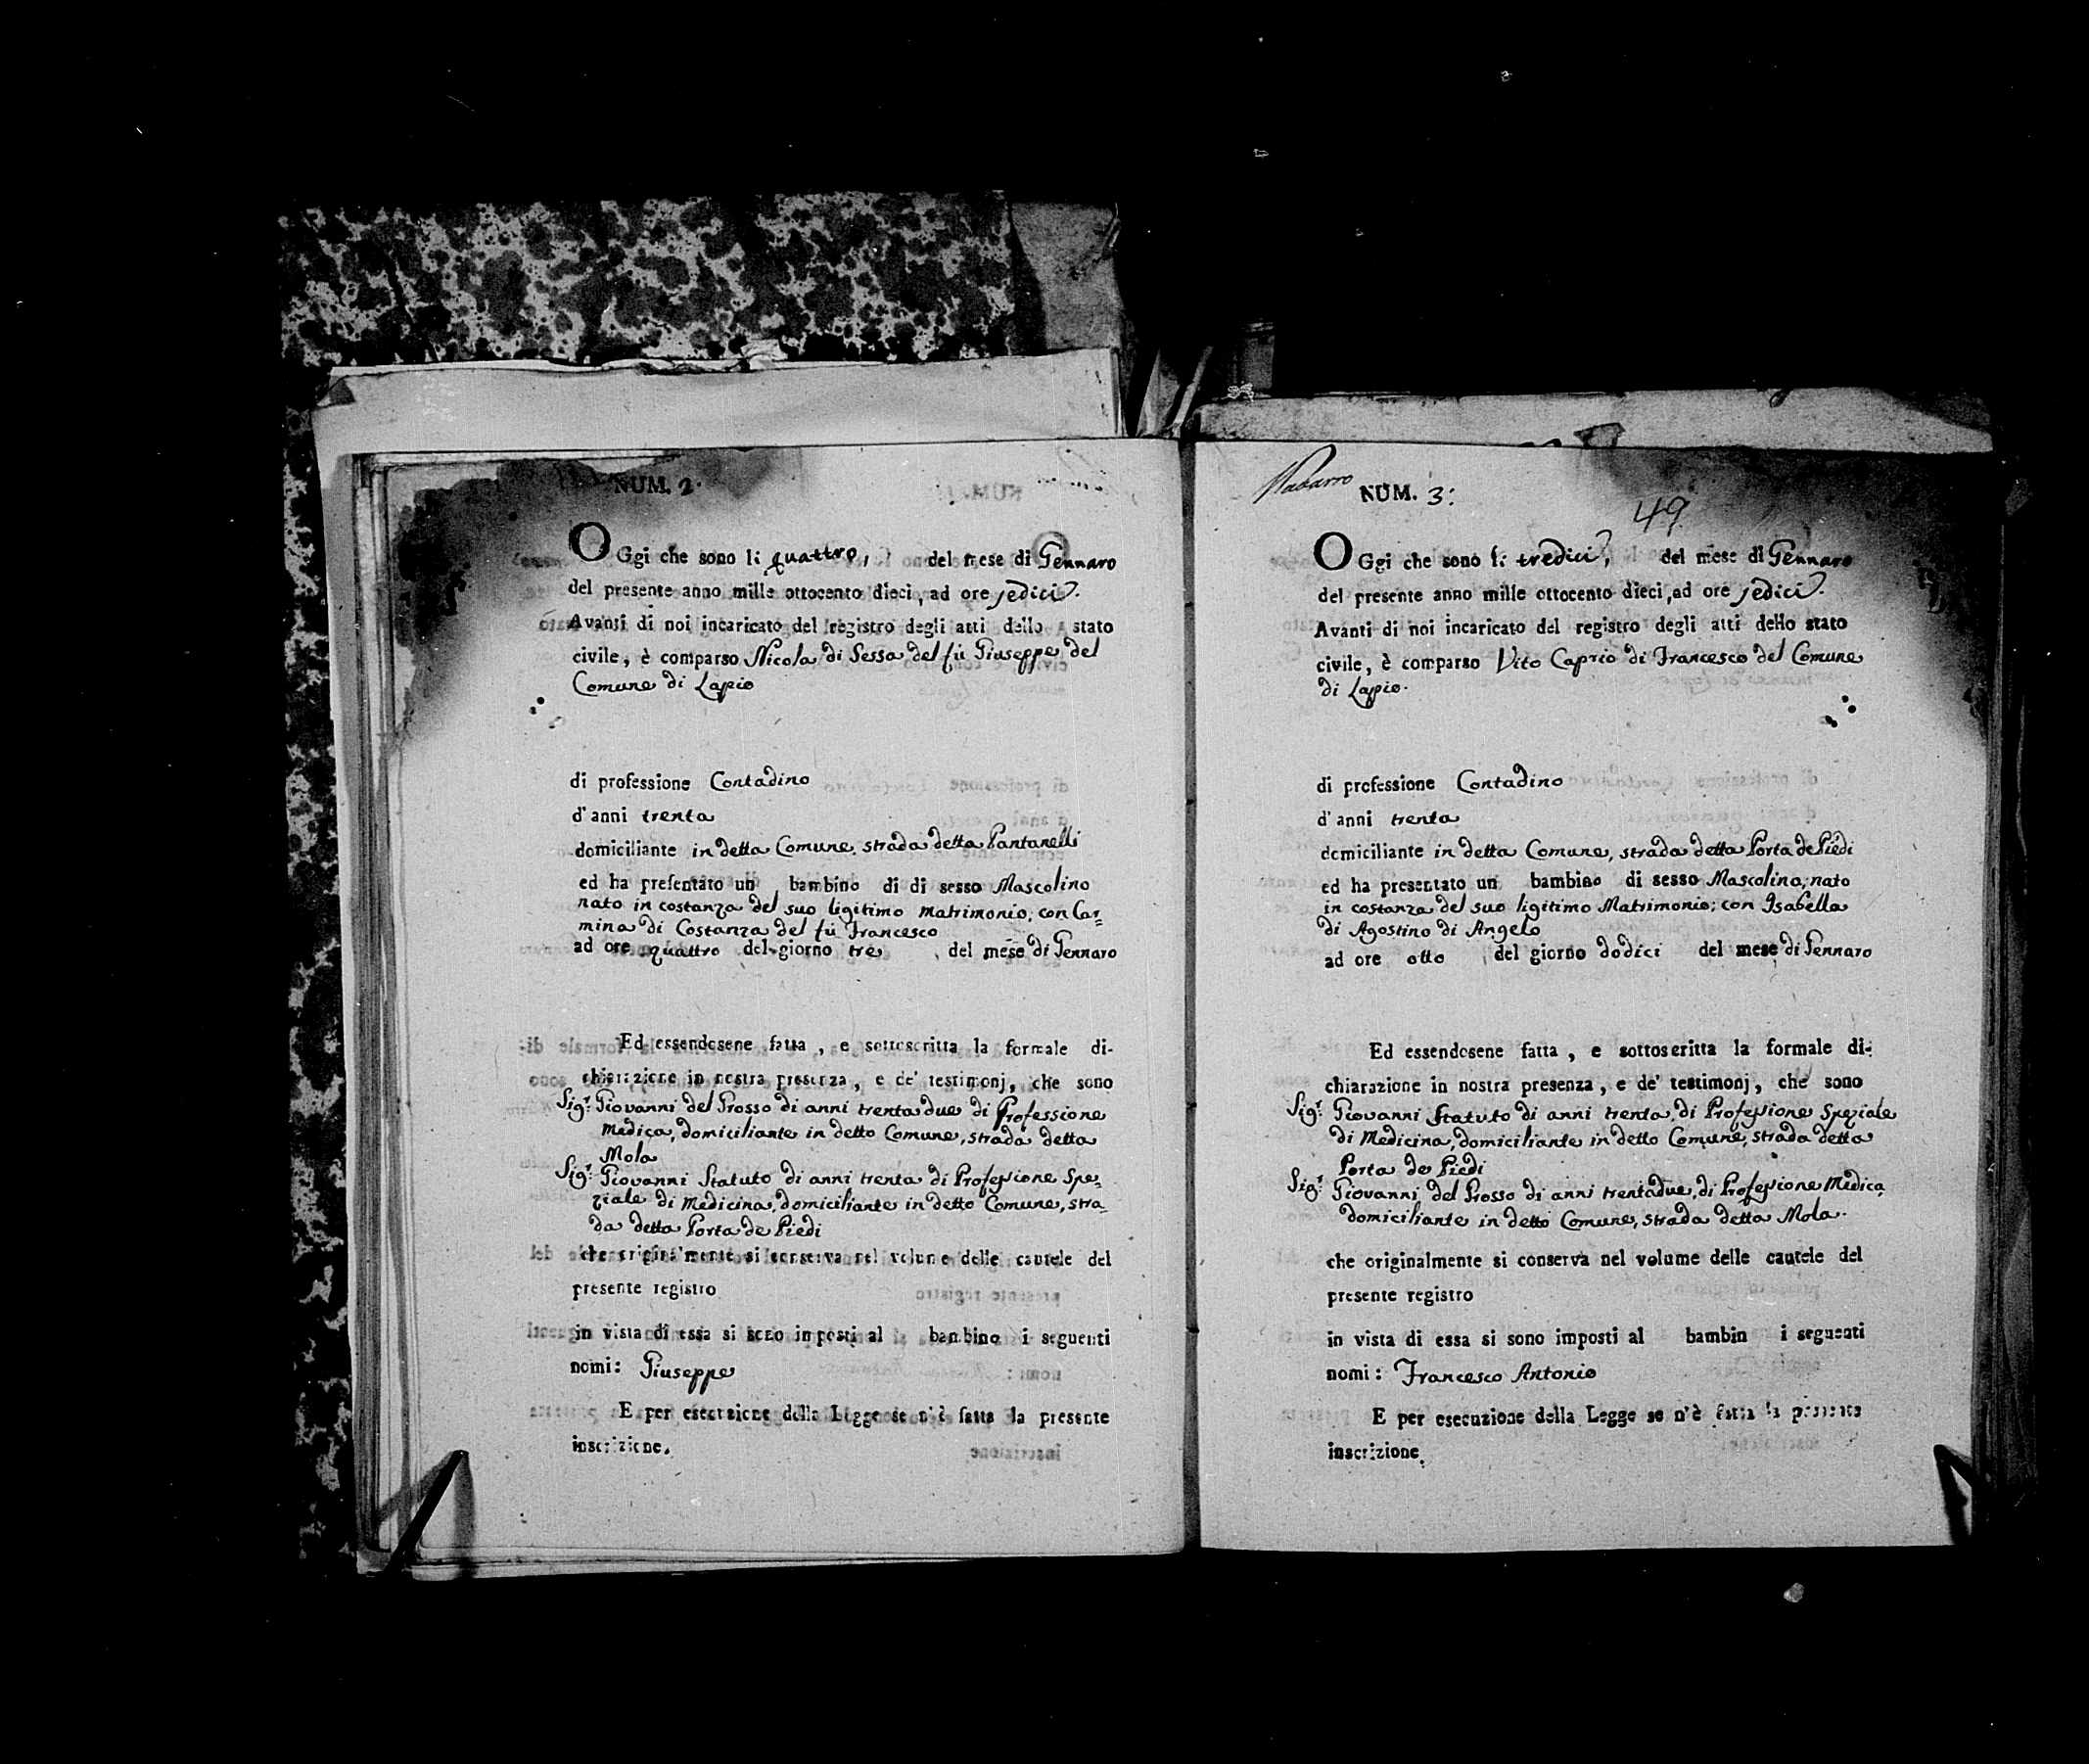 NUM. 2.
OGgi che sono li quattro, del mese di Gennaro
del presente anno mille ottocento dieci, ad ore sedici.
Avanti di noi incaricato del registro degli atti dello stato
civile, è comparso Nicola di Sessa del fù Giuseppe del
Comune di Lapio
di professione Contadino
d'anni trenta
domiciliante in detta Comune, strada detta Pantanelli
ed ha presentato un bambino di di sesso Mascolino
nato in costanza del suo ligitimo matrimonio, con Car=
mina di Costanza del fù Francesco
ad ore quattro del giorno tre del mese di Gennaro
Ed essendosene fatta, e sottoscritta la formale di-
chiarazione in nostra presenza, e de' testimonj, che sono
Sigr: Giovanni del Grosso di anni trenta due di Professione
Medica, domiciliante in detto Comune, strada detta
Mola
Sigr: Giovanni Statuto di anni trenta di Professione Spe=
ziale di Medicina, domiciliante in detto Comune, stra=
da detta Porta de Piedi
che originalmente si conserva nel volume delle cautele del
presente registro
in vista di essa si sono imposti al bambino i seguenti
nomi: Giuseppe
E per esecuzione della Legge se n'è fatta la presente
inscrizione.
NUM. 3:
49
OGgi che sono li tredici, del mese di Gennaro
del presente anno mille ottocento dieci, ad ore sedici.
Avanti di noi incaricato del registro degli atti dello stato
civile, è comparso Vito Caprio di Francesco del Comune
di Lapio.
di professione Contadino
d'anni trenta
domiciliante in detta Comune, strada detta Porta de Piedi
ed ha presentato un bambino di sesso Mascolino, nato
in costanza del suo ligitimo Matrimonio; con Isabella
di Agostino di Angelo
ad ore otto del giorno dodici del mese di Gennaro
Ed essendosene fatta, e sottoscritta la formale di-
chiarazione in nostra presenza, e de' testimonj, che sono
Sigr: Giovanni Statuto di anni trenta, di Professione Speziale
di Medicina, domiciliante in detto Comune, strada detta
Porta de Piedi
Sigr: Giovanni del Grosso di anni trentadue, di Professione Medica,
domiciliante in detto Comune, strada detta Mola.
che originalmente si conserva nel volume delle cautele del
presente registro
in vista di essa si sono imposti al bambin i seguenti
nomi: Francesco Antonio
E per esecuzione della Legge se n'è fatta la presente
inscrizione.